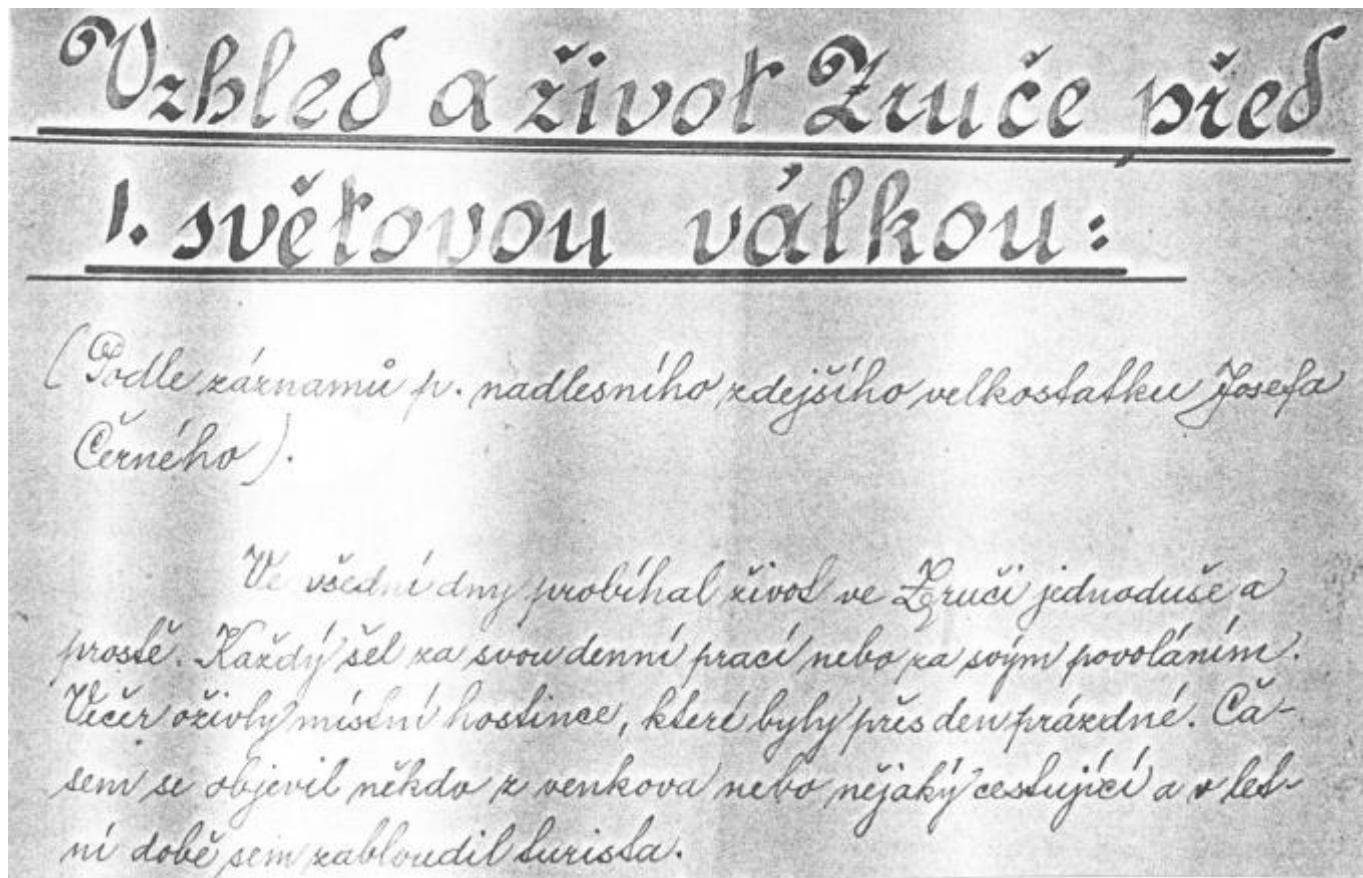 Vzhled a život Zruče před
1. světovou válkou:
(Podle záznamů p. nadlesního zdejšího velkostatku Josefa
Černého).
Ve všední dny probíhal život ve Zruči jednoduše a
prostě. Každý šel za svou denní prací nebo za svým povoláním.
Večer oživly místní hostince, které byly přes den prázdné. Ča-
sem se objevil někdo z venkova nebo nějaký cestující a v let-
ní době sem zabloudil turista.